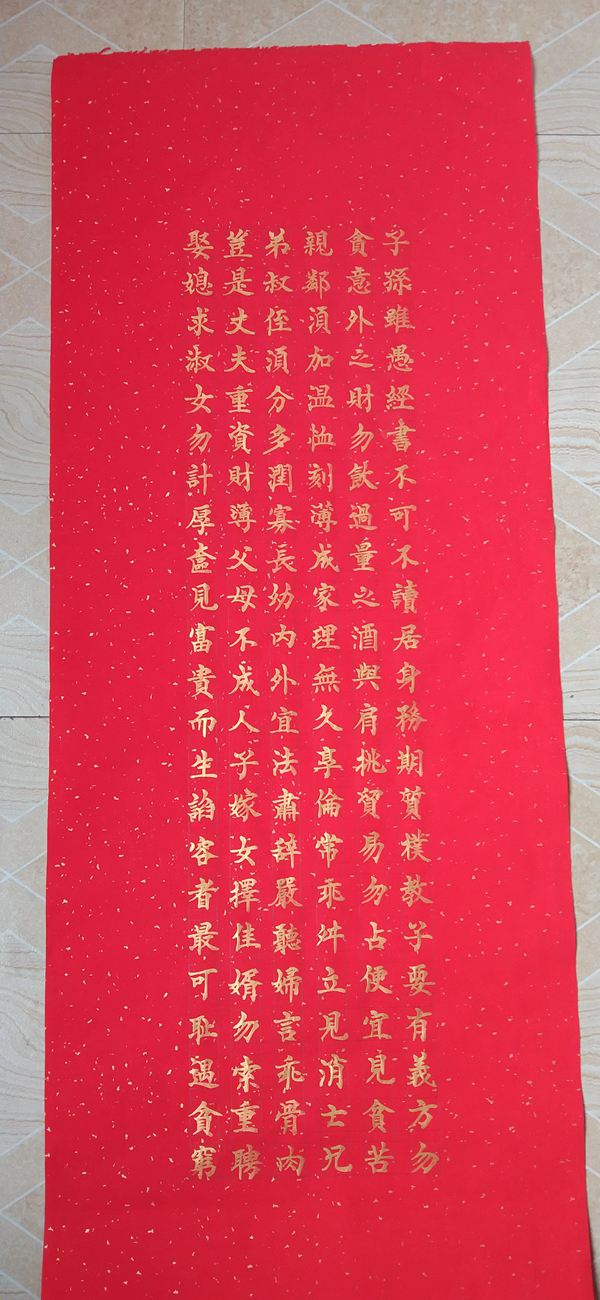 子孫雖愚經書不可不讀居身務期質樸教子要有義方勿
貪意外之財勿飲過量之酒與肩挑貿易勿占便宜見貧苦
親鄰須加温恤刻薄成家理無久享倫常乖舛立見消亡兄
弟叔侄須分多潤寡長幼内外宜法肅辞嚴聽婦言乖骨肉
豈是丈夫重資財薄父母不成人子嫁女擇佳婿勿索重聘
娶媳求淑女勿計厚奩見富貴而生諂容者最可耻遇貧窮